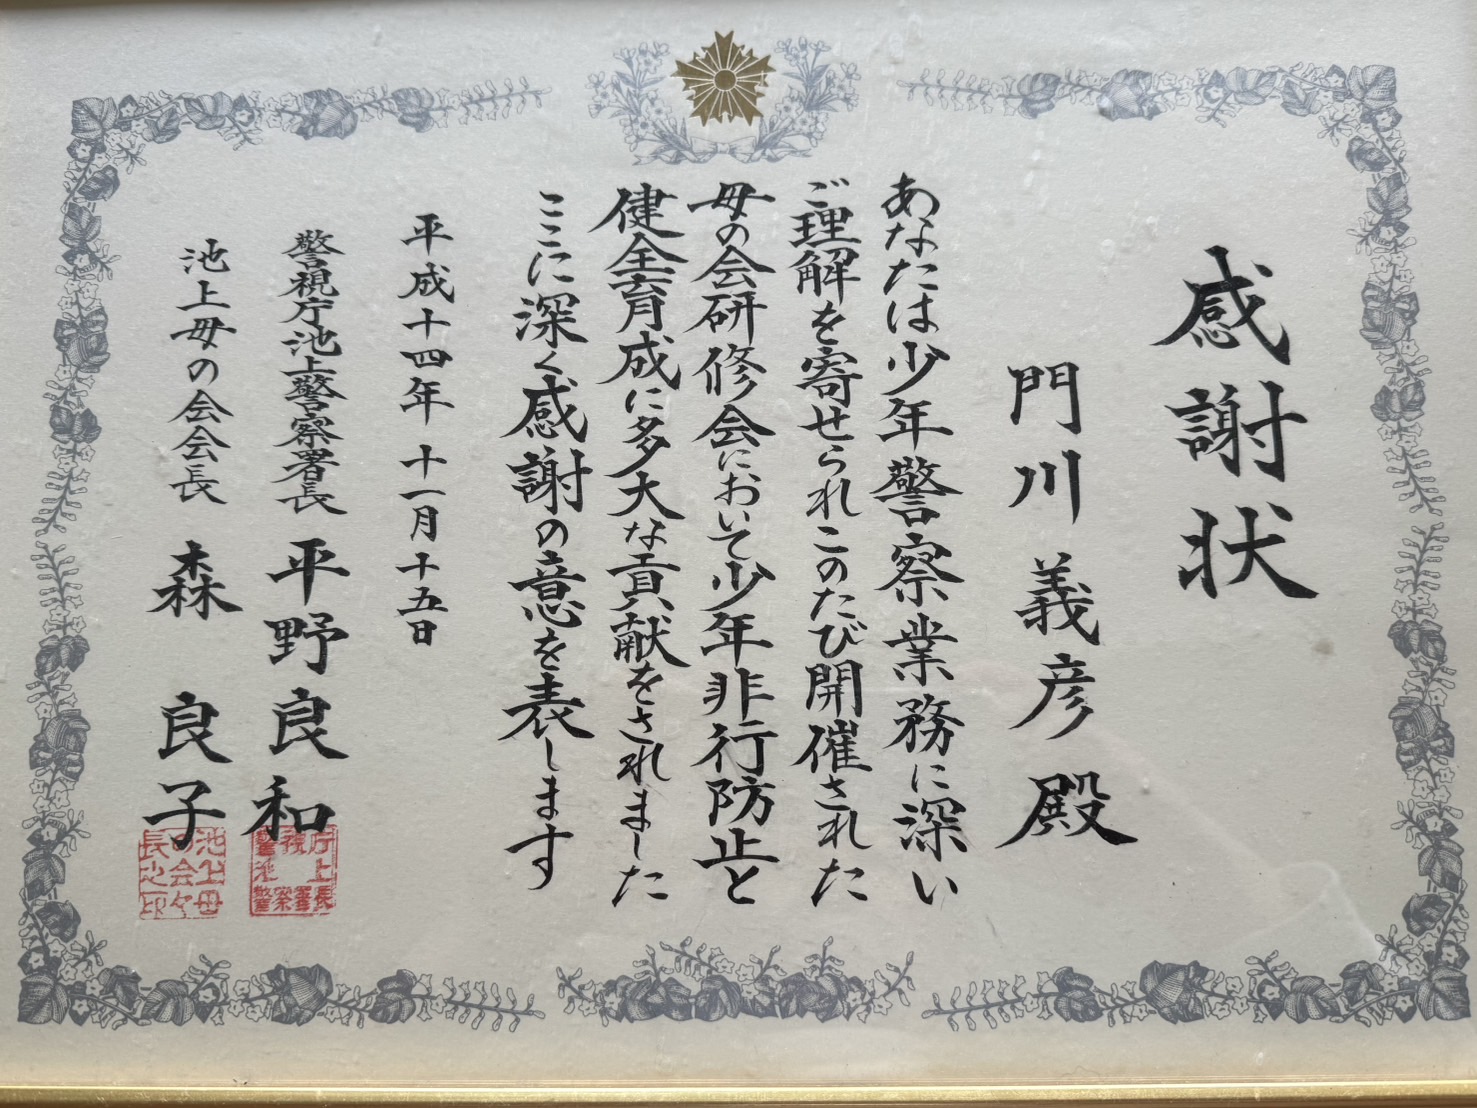 感謝状
門川義彦殿
あなたは少年警察業務に深い
ご理解を寄せられこのたび開催された
母の会研修会において少年非行防止と
健全育成に多大な貢献をされました
ここに深く感謝の意を表します
平成十四年十一月十五日
警視庁池上警察署長 平野良和
池上母の会会長 森良子
池上母
の会会
長之印